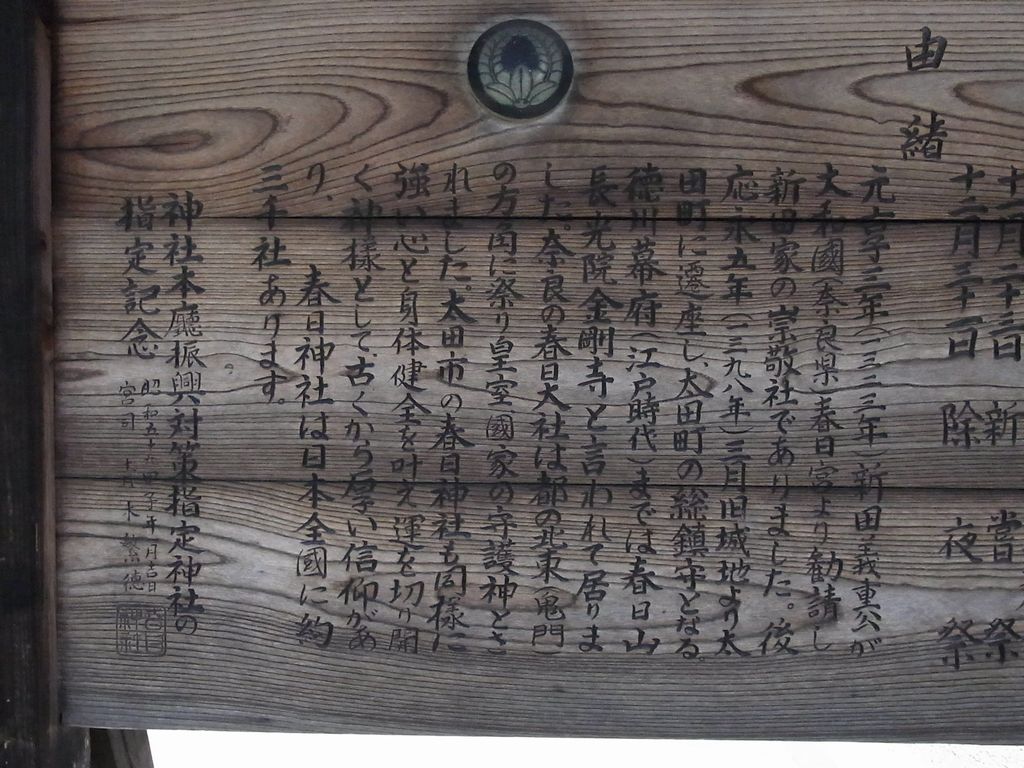 十一月二十三日　新嘗祭
十二月三十一日　除夜祭
由緒
元亨三年(一三二三年)新田義重公が
大和國(奈良県)春日宮より勧請し
新田家の崇敬社でありました。後
応永五年(一三九八年)三月旧城地より太
田町に遷座し、太田町の総鎮守となる。
徳川幕府(江戸時代)までは春日山
長光院金剛寺と言われて居りま
した。奈良の春日大社は都の北東(鬼門)
の方角に祭り皇室國家の守護神とさ
れました。太田市の春日神社も同様に
強い心と身体健全を叶え運を切り開
く神様として、古くから厚い信仰があ
り、春日神社は日本全國に約
三千社あります。
神社本廳振興対策指定神社の
指定記念
昭和五十九甲子年　月吉日
宮司　木繁徳